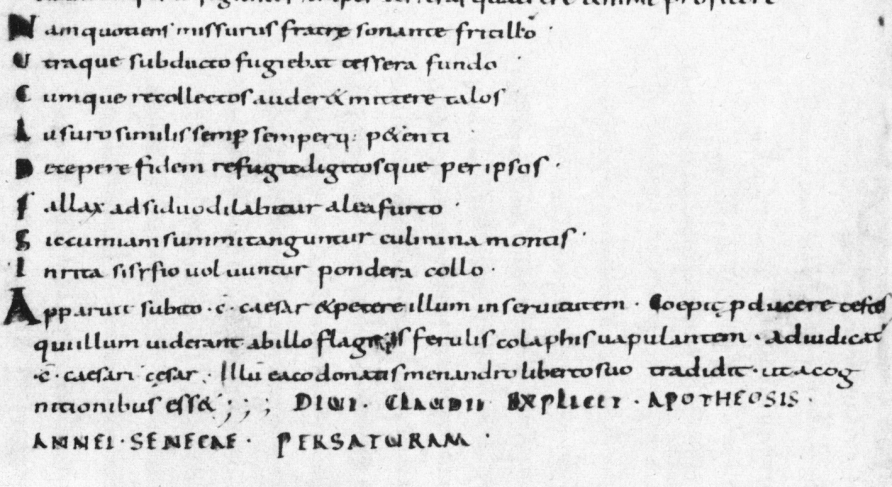 N am quotiens missurus fratre sonante fritillo ·
U traque subducto fugiebat tessera fundo
C umque recollectos auder& mittere talos
L usuro similis semp semperq: p&enti
D ecepere fidem refugit digitosque per ipsos ·
f allax adsiduo dilabitur alea furto ·
S ic cum iam summi tanguntur culmina montis ·
I nrita sisyfio uoluuntur pondera collo ·
Apparuit subito · c̄ · caesar & petere illum in seruitutem · Coepit pducere testes
qui illum uiderant ab illo flagris ferulis colaphis uapulantem · adiudicat͛
· c̄ · caesari cesar · Illū eaco donat is menandro liberto suo tradidit · ut a cog
nitionibus ess& ; ; ; DIUI · CLAUDII EXPLICIT · APOTHEOSIS ·
ANNEI · SENECAE · PER SATURAM ·